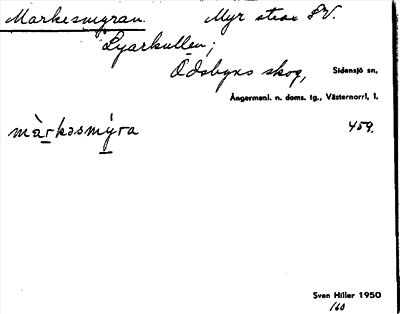 Markesmyran. Myr strax SV.
Lyarkullen;
Ödsbyns skog, Sidensjö sn,
Ångermanl. n. doms. tg., Västernorrl. l.
màrkəsmýra 459.
Sven Hiller 1950
160